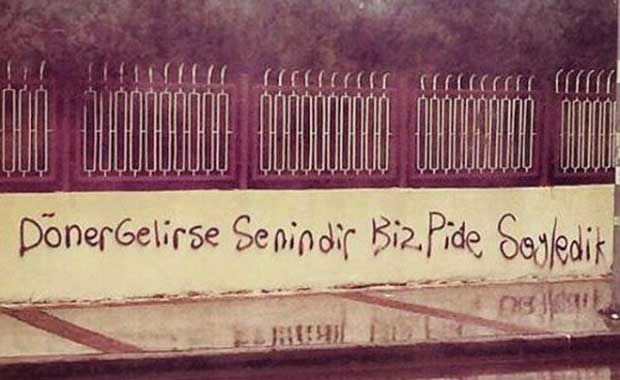 DönerGelirse Senindir Biz Pide Soyledik